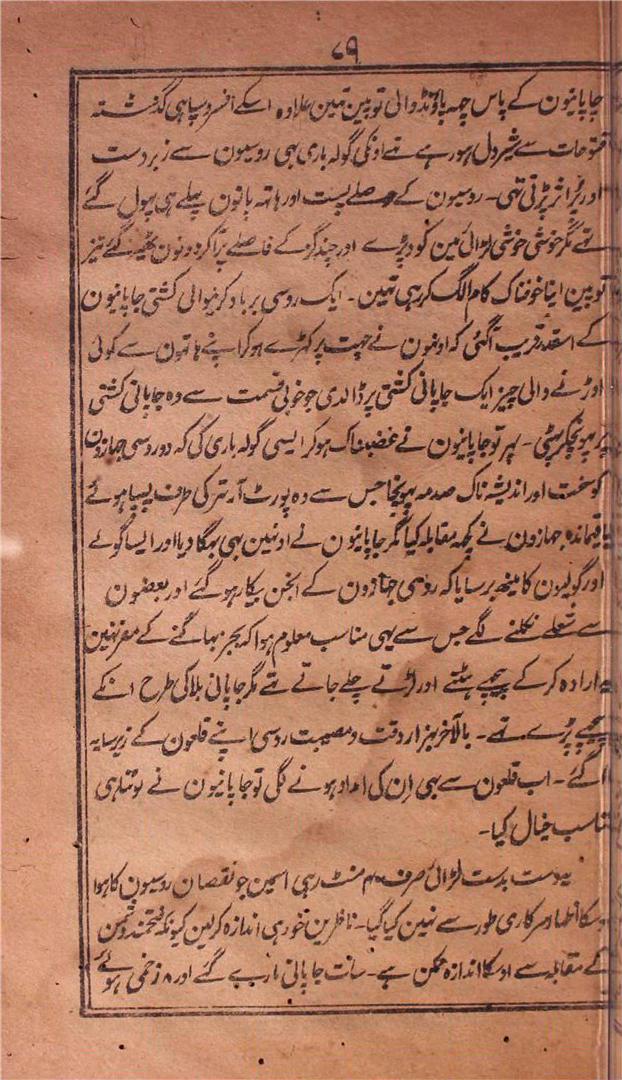 ۸۹
جاپانیون کے پاس چھہ پاؤنڈ والی توپین تہین علاوہ اسکے افسر و سپاہی گذشتہ
فتوحات سے شیردل ہورہے تہے اونکی گولہ باری بہی روسیون سے زبردست
اور پُر اثر پڑتی تہی۔ روسیون کے حوصلے پست اور ہاتہہ پانون پہلے ہی پہول گئے
تہے مگر خوشی خوشی لڑائی مین کود پڑے اور چند گز کے فاصلے پر آکر دونون گتھہ گئے نیز
توپین اپنا خوفناک کام الگ کر رہی تہین۔ ایک روسی برباد کرنیوالی کشتی جاپانیون
کے اسقدر قریب آگئی کہ اونہون نے چہت پر کہڑے ہوکر اپنے ہاتہون سے کوئی
اوڑنے والی چیز ایک جاپانی کشتی پر ڈالدی جو خوبی قسمت سے وہ جاپانی کشتی
پر پہونچکر پہٹی۔ پہر تو جاپانیون نے غضبناک ہوکر ایسی گولہ باری کی کہ دو روسی جہازون
کو سخت اور اندیشہ ناک صدمہ پہونچا جس سے وہ پورٹ آرتہر کی طرف پسپا ہوئے
باقیماندہ جہازون نے کچہہ مقابلہ کیا مگر جاپانیون نے اونہین بہی بہگا دیا اور ایسا گولے
اور گولیون کا مینھہ برسایا کہ روسی جہازون کے انجن بیکار ہوگئے اور بعضون
سے شعلے نکلنے لگے جس سے یہی مناسب معلوم ہوا کہ بجز بہاگنے کے مفر نہین
یہ ارادہ کرکے پیچہے ہٹتے اور لڑتے چلے جاتے تہے مگر جاپانی بلا کی طرح انکے
پیچہے پڑے تہے۔ بالآخر ہزار دقت و مصیبت روسی اپنے قلعون کے زیر سایہ
آگئے۔ اب قلعون سے بہی اِن کی امداد ہونے لگی تو جاپانیون نے لوٹنا ہی
مناسب خیال کیا۔
یہ دست بدست لڑائی صرف ۴۰ منٹ رہی اسمین جو نقصان روسیون کا ہوا
اسکا اظہار سرکاری طور سے نہین کیا گیا۔ ناظرین خود ہی اندازہ کرلین کیونکہ فتحمند دشمن
کے مقابلہ سے اوسکا اندازہ ممکن ہے۔ سات جاپانی مارے گئے اور ۸ زخمی ہوئے